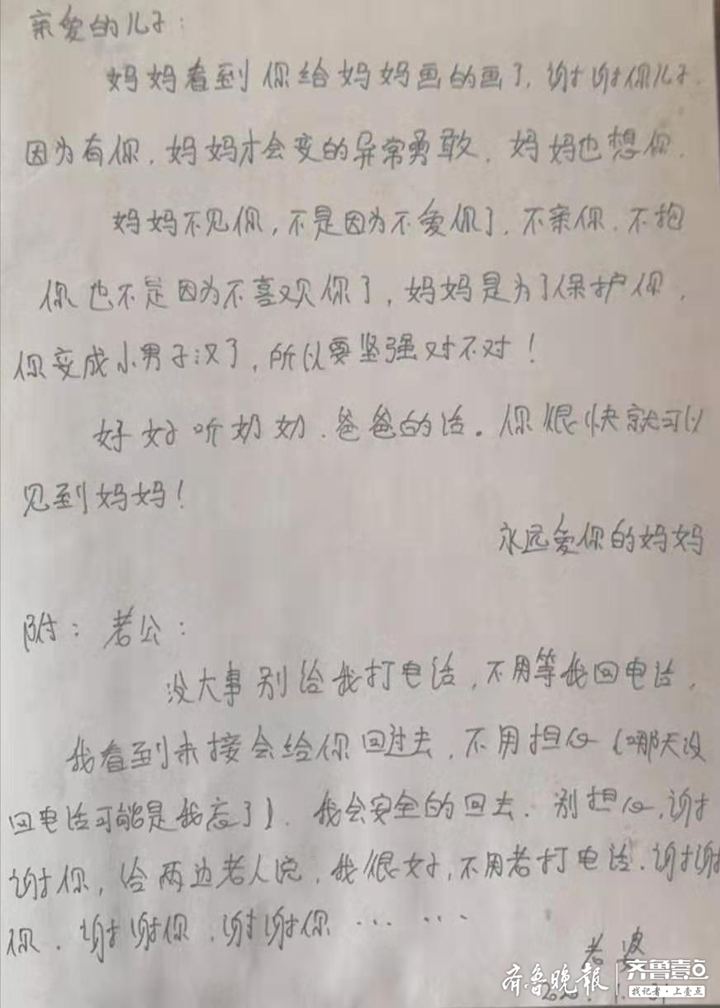 亲爱的儿子：
妈妈看到你给妈妈画的画了，谢谢你儿子.
因为有你，妈妈才会变的异常勇敢，妈妈也想你.
妈妈不见你，不是因为不爱你了，不亲你，不抱
你也不是因为不喜欢你了，妈妈是为了保护你，
你变成小男子汉了，所以要坚强对不对！
好好听奶奶、爸爸的话。你很快就可以
见到妈妈！
永远爱你的妈妈
附：老公：
没大事别给我打电话，不用等我回电话，
我看到未接会给你回过去，不用担心（哪天没
回电话可能是我忘了）.我会安全的回去.别担心，谢
谢你，给两边老人说，我很好，不用老打电话.谢谢
你.谢谢你，谢谢你… …
老婆
齐鲁晚报 齐鲁壹点
找记者·上壹点